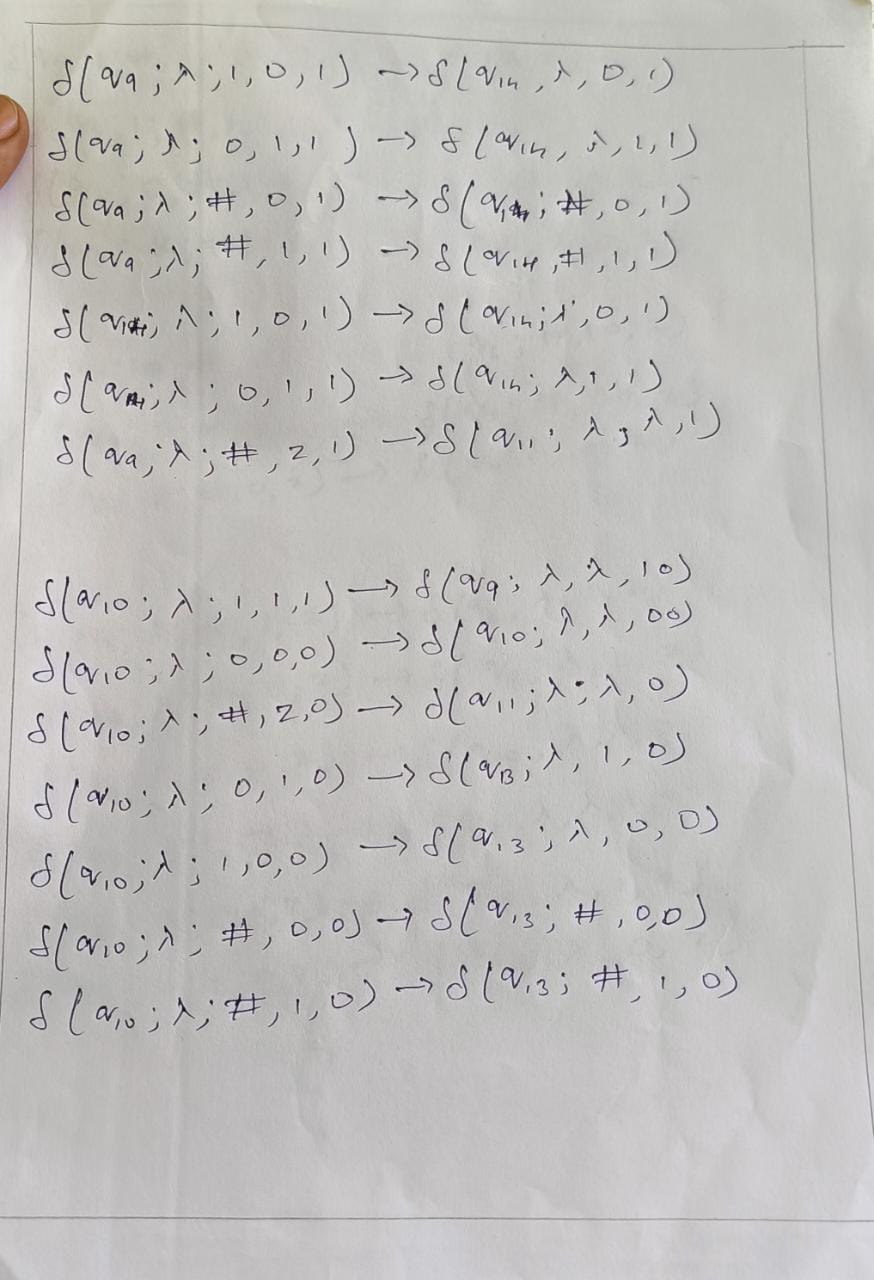 δ(q9; λ; 1, 0, 1) → δ(q14, λ, 0, 1)
δ(q9; λ; 0, 1, 1) → δ(q14, λ, 1, 1)
δ(q9; λ; #, 0, 1) → δ(q14; #, 0, 1)
δ(q9; λ; #, 1, 1) → δ(q14, #, 1, 1)
δ(q14; λ; 1, 0, 1) → δ(q14; λ, 0, 1)
δ( ; λ; 0, 1, 1) → δ(q14; λ, 1, 1)
δ(q9; λ; #, z, 1) → δ(q11; λ; λ, 1)
δ(q10; λ; 1, 1, 1) → δ(q9; λ, λ, 10)
δ(q10; λ; 0, 0, 0) → δ(q10; λ, λ, 00)
δ(q10; λ; #, z, 0) → δ(q11; λ; λ, 0)
δ(q10; λ; 0, 1, 0) → δ(q13; λ, 1, 0)
δ(q10; λ; 1, 0, 0) → δ(q13; λ, 0, 0)
δ(q10; λ; #, 0, 0) → δ(q13; #, 0, 0)
δ(q10; λ; #, 1, 0) → δ(q13; #, 1, 0)